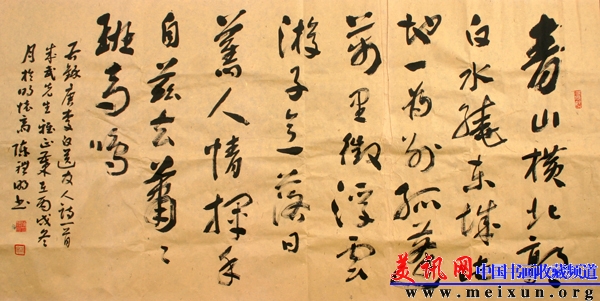 青山横北郭
白水繞东城此
地一为别孤蓬
万里徵浮雲
游子意落日
舊人情挥手
自兹去蕭々
班马鸣
右録唐李白送友人诗一首
成武先生雅正 岁在丙戌冬
月於明怀斋 陈
美讯网 中国书画收藏频道
www.meixun.org